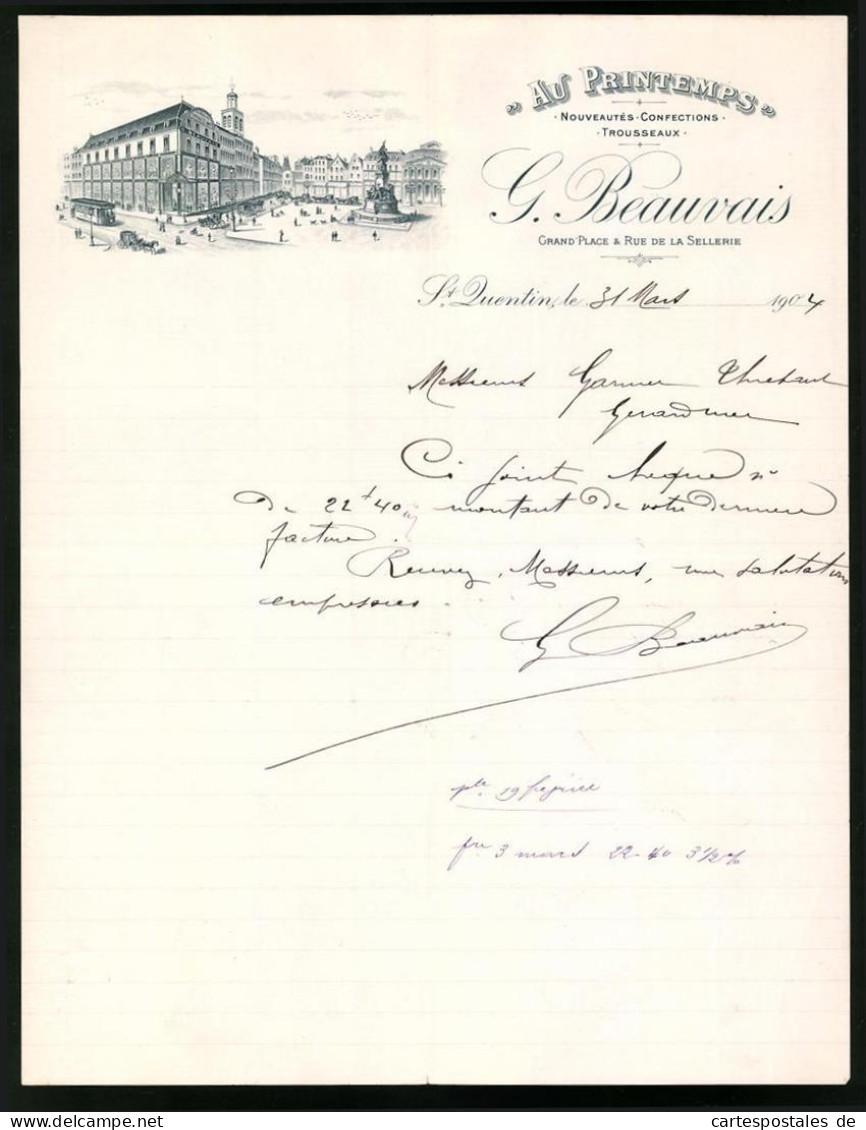 „AU PRINTEMPS„
· NOUVEAUTÉS · CONFECTIONS ·
· TROUSSEAUX ·
G. Beauvais
GRAND'PLACE & RUE DE LA SELLERIE
St. Quentin, le 31 Mars 1904
Messieurs Garnier Thiebaut
Gerardmer
Ci joint cheque
de 22f 40 montant de votre derniere
facture.
Recevez, Messieurs, mes salutations
empressées.
G Beauvais
19
fre 3 mars 22-40 3 1/2 %
cartespostales de